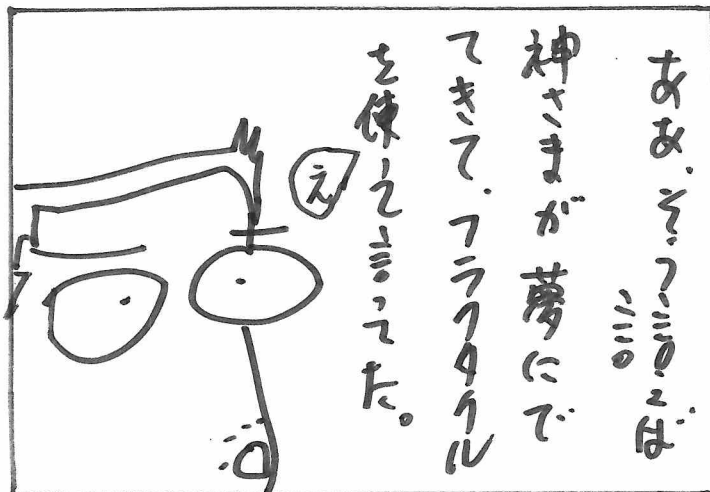 ああ、そう言えば
神さまが夢にで
てきて、フラクタクル
を使って言ってた。
え